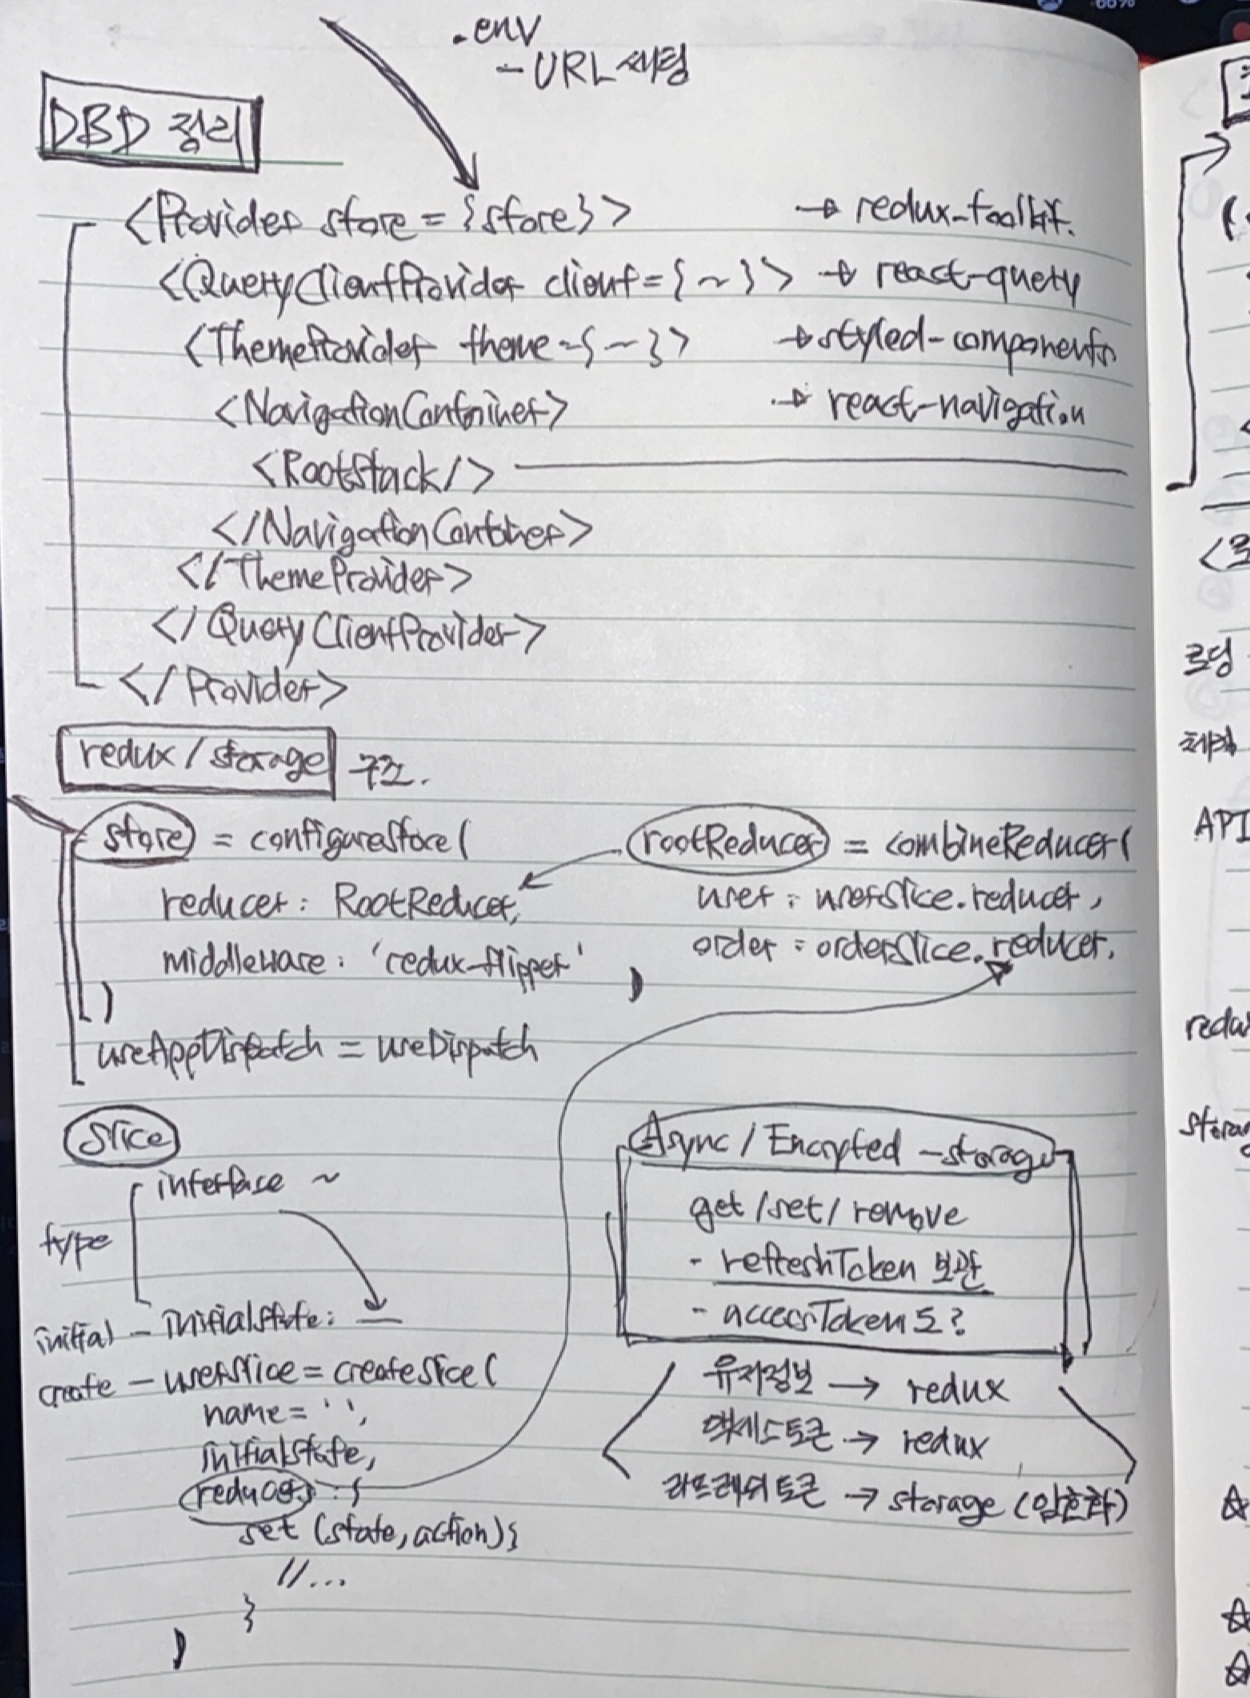 .env
- URL 세팅
DBD 정리
<Provider store = {store}> → redux-toolkit.
<QueryClientProvider client={~}> → react-query
<ThemeProvider theme={~}> → styled-components
<NavigationContainer> → react-navigation
<RootStack/>
</NavigationContainer>
</ThemeProvider>
</QueryClientProvider>
</Provider>
redux/storage 구조.
store = configureStore(
reducer: RootReducer,
middleware: 'redux-flipper'
)
useAppDispatch = useDispatch
rootReducer = combineReducer(
user: userSlice.reducer,
order: orderSlice.reducer.
)
Slice
type interface ~
initial - initialState: —
create - userSlice = createSlice(
name = '',
initialState,
reducers: {
set (state, action){
//...
}
)
Async/Encrypted-storage
get/set/remove
- refreshToken 보관
- accessToken도?
유저정보 → redux
액세스토큰 → redux
리프레쉬토큰 → storage (암호화)
로딩
API